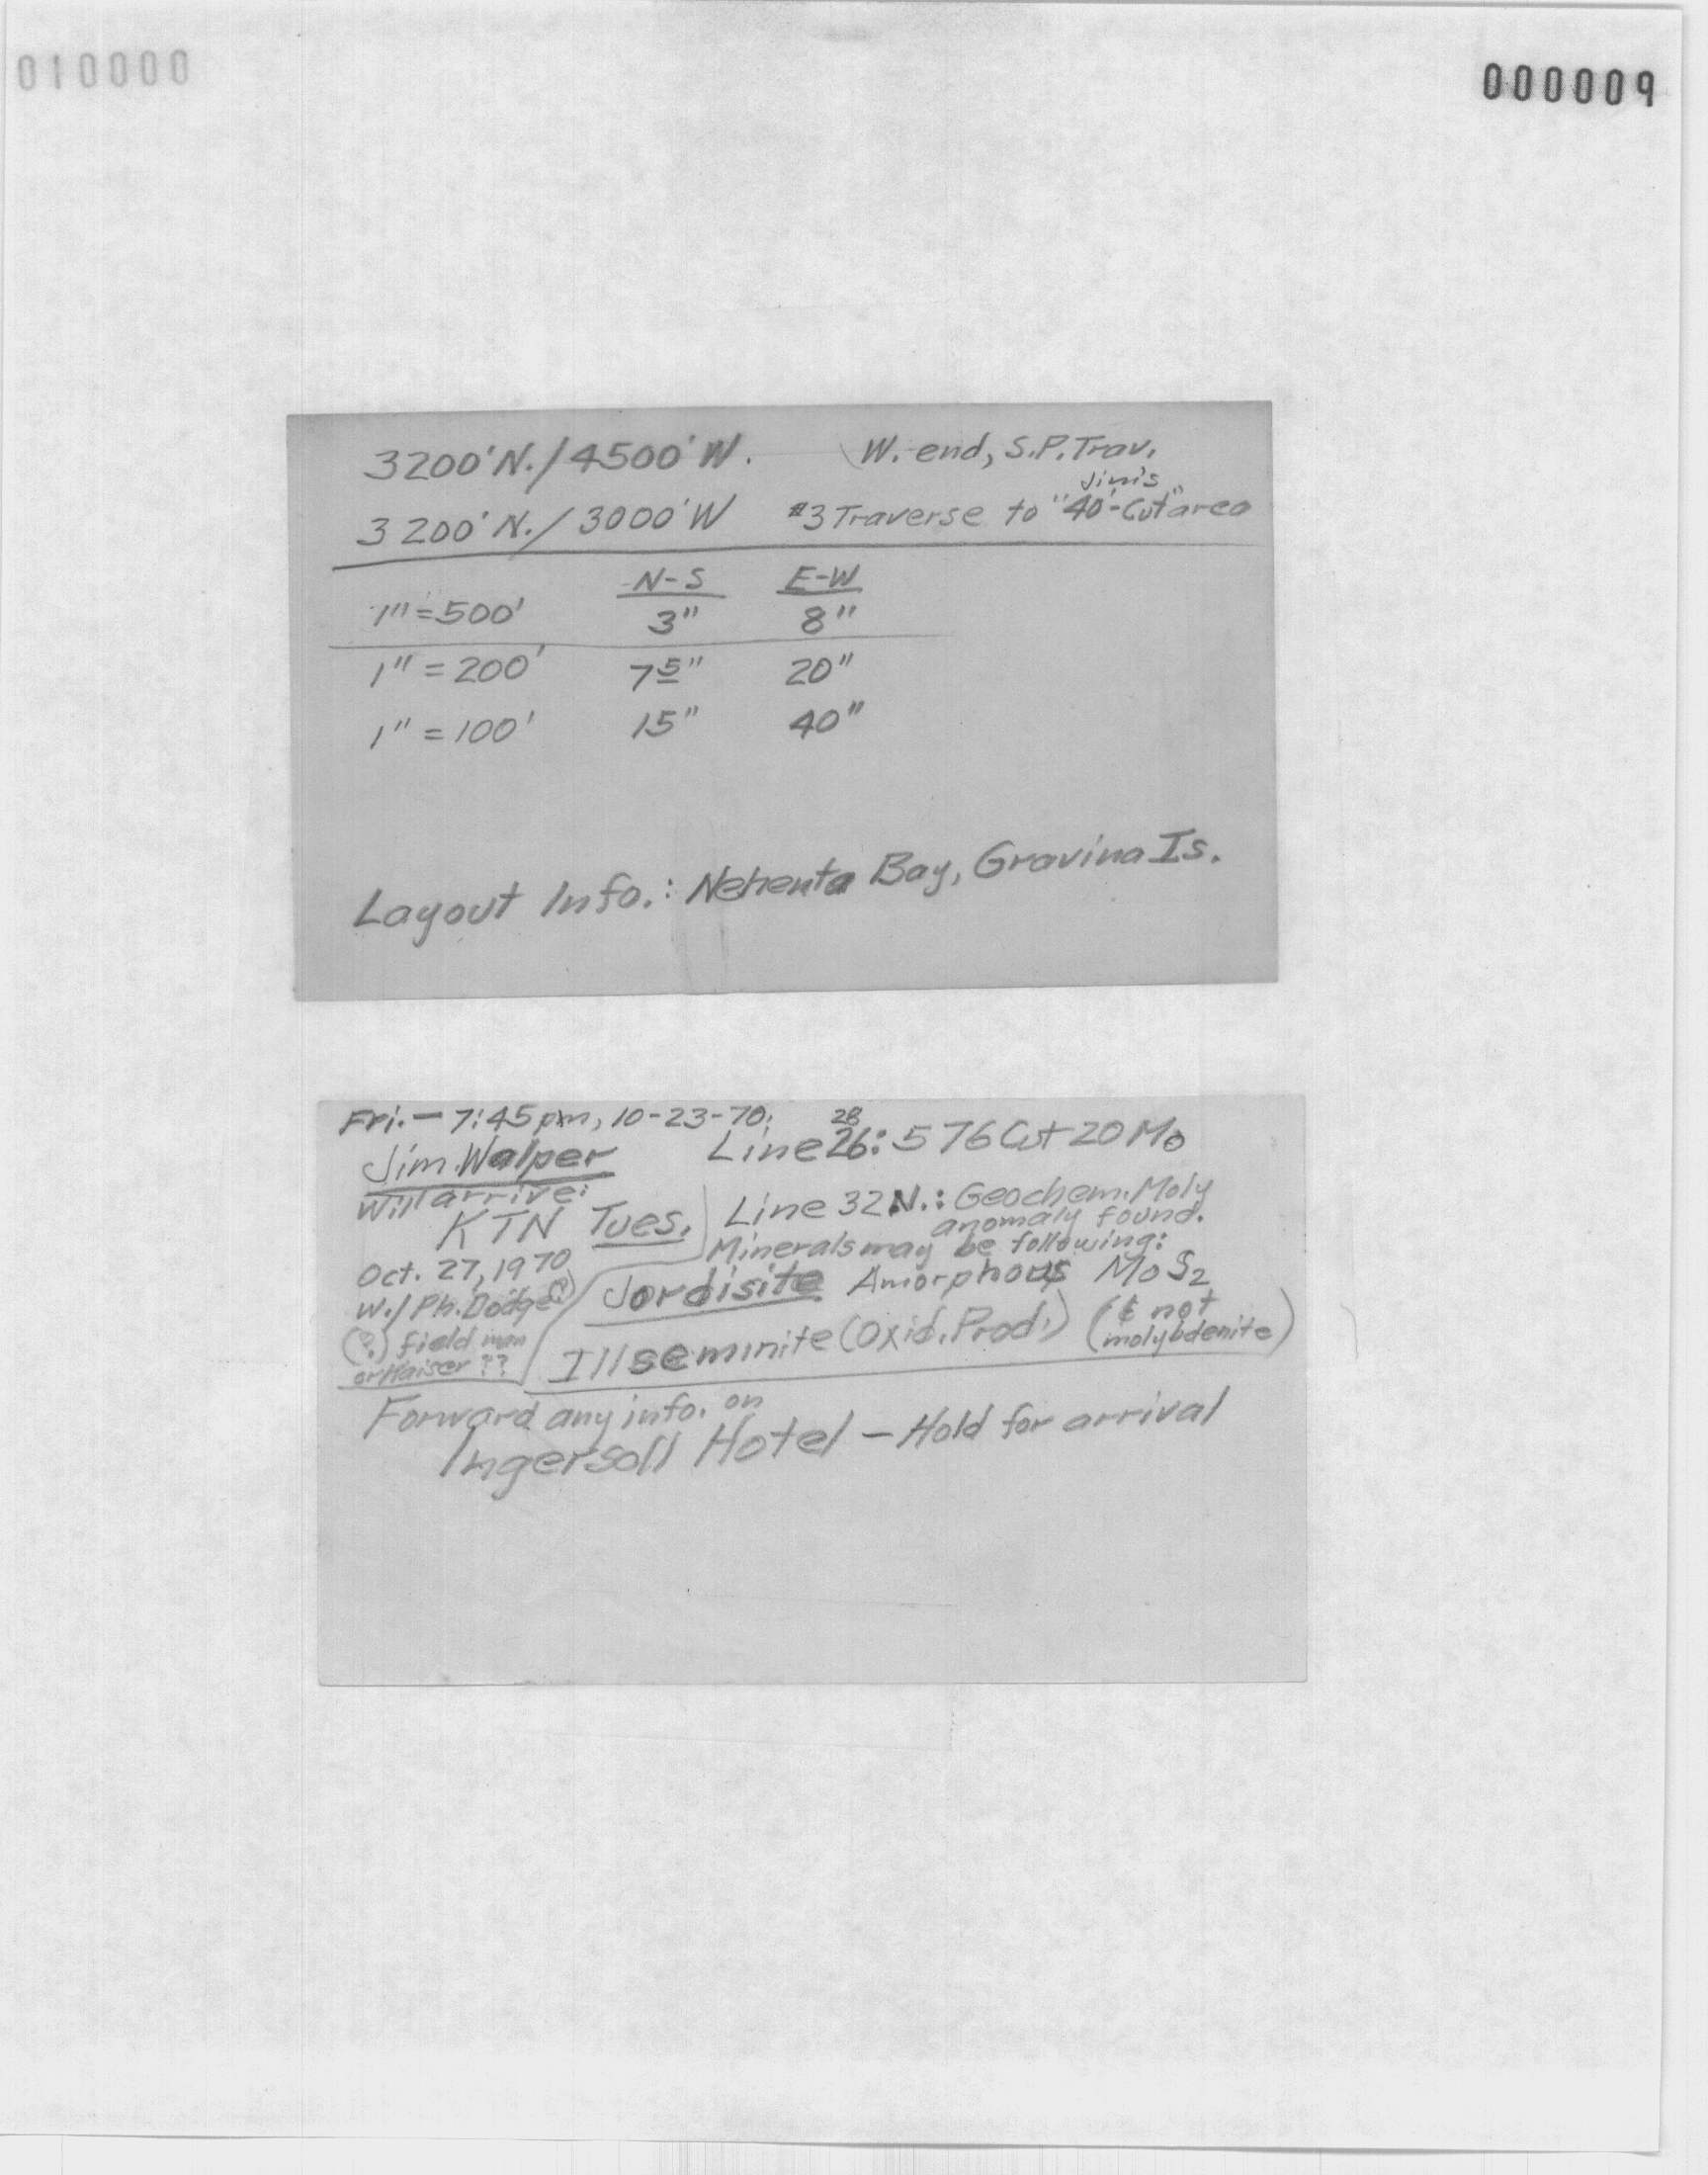 010000
000009
3200'N./4500'W. W. end, S.P. Trav.
Jim's
3200'N./3000'W #3 Traverse to "40'-Cut" area
N-S E-W
1"=500' 3" 8"
1"=200' 75" 20"
1"=100' 15" 40"
Layout Info.: Nehenta Bay, Gravina Is.
Fri.- 7:45 pm, 10-23-70.
28
Line 26: 576 Cu + 20 Mo
Jim Walper
will arrive:
KTN Tues.
Oct. 27, 1970
W./Ph. Dodge(?)
(?) field man
or Kaiser ??
Line 32N.: Geochem. Moly
anomaly found.
Minerals may be following:
Jordisite Amorphous MoS2
(& not
molybdenite)
Illseminite (Oxid. Prod.)
Forward any info. on
Ingersoll Hotel - Hold for arrival